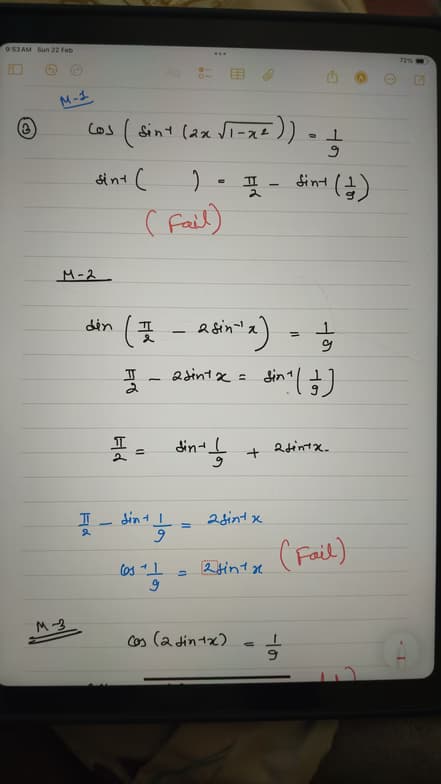 9:53 AM Sun 22 Feb
72%
M-1
③ cos (sin-1 (2x √1-x²)) = 1/9
sin-1 ( ) = π/2 - sin-1 (1/9)
(Fail)
M-2
sin (π/2 - 2sin-1x) = 1/9
π/2 - 2sin-1x = sin-1(1/9)
π/2 = sin-1 1/9 + 2sin-1x
π/2 - sin-1 1/9 = 2sin-1x
cos-1 1/9 = 2sin-1x (Fail)
M-3
cos (2sin-1x) = 1/9